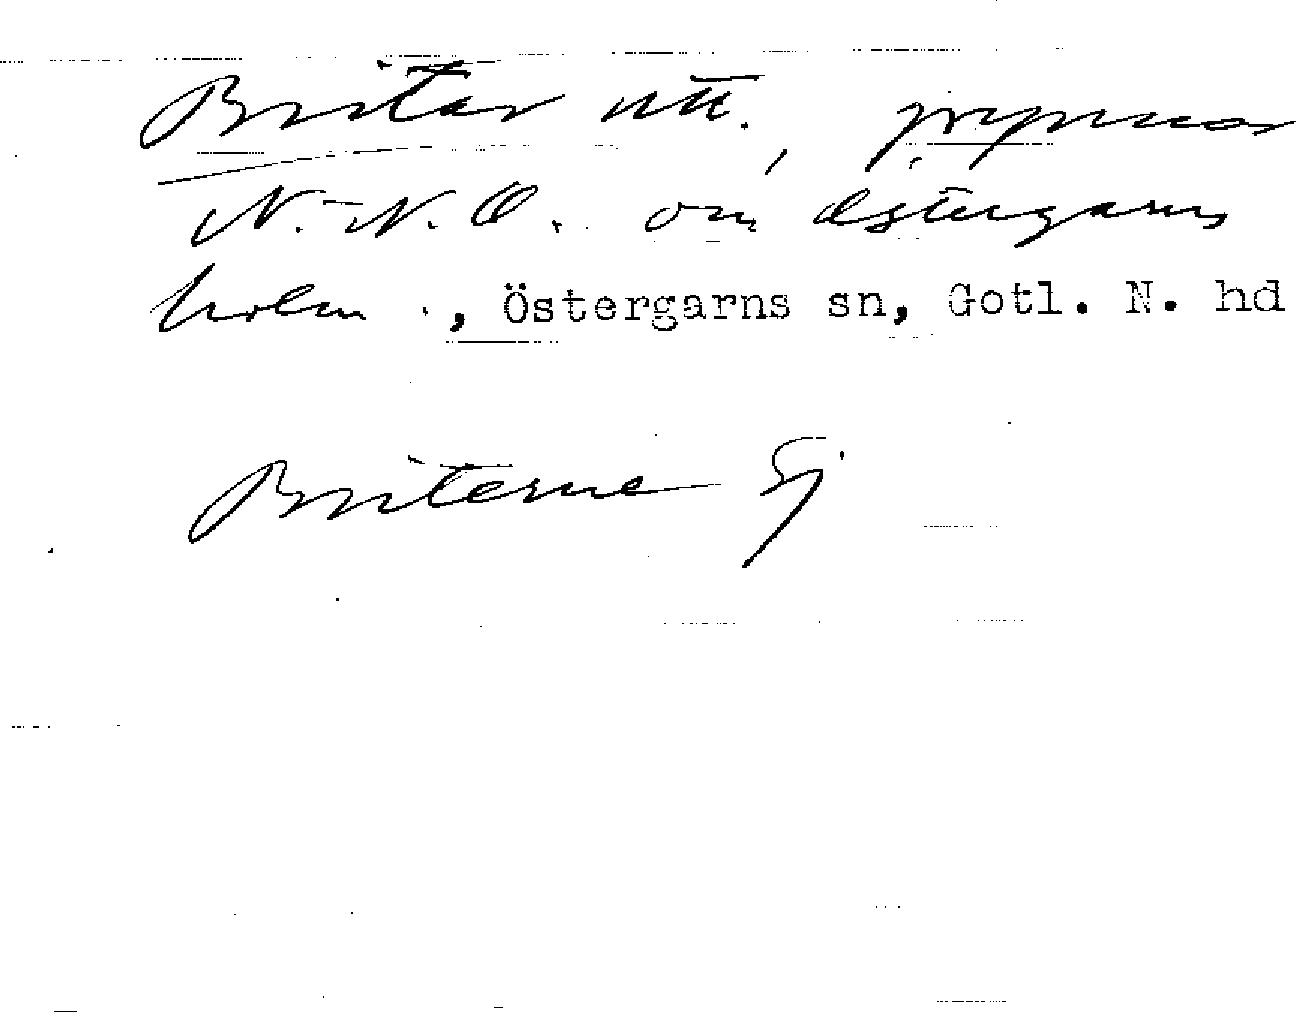 Britar utt., grynnor
N.-N.O. om Östergarns
holm ., Östergarns sn, Gotl. N. hd
Briterne Sj